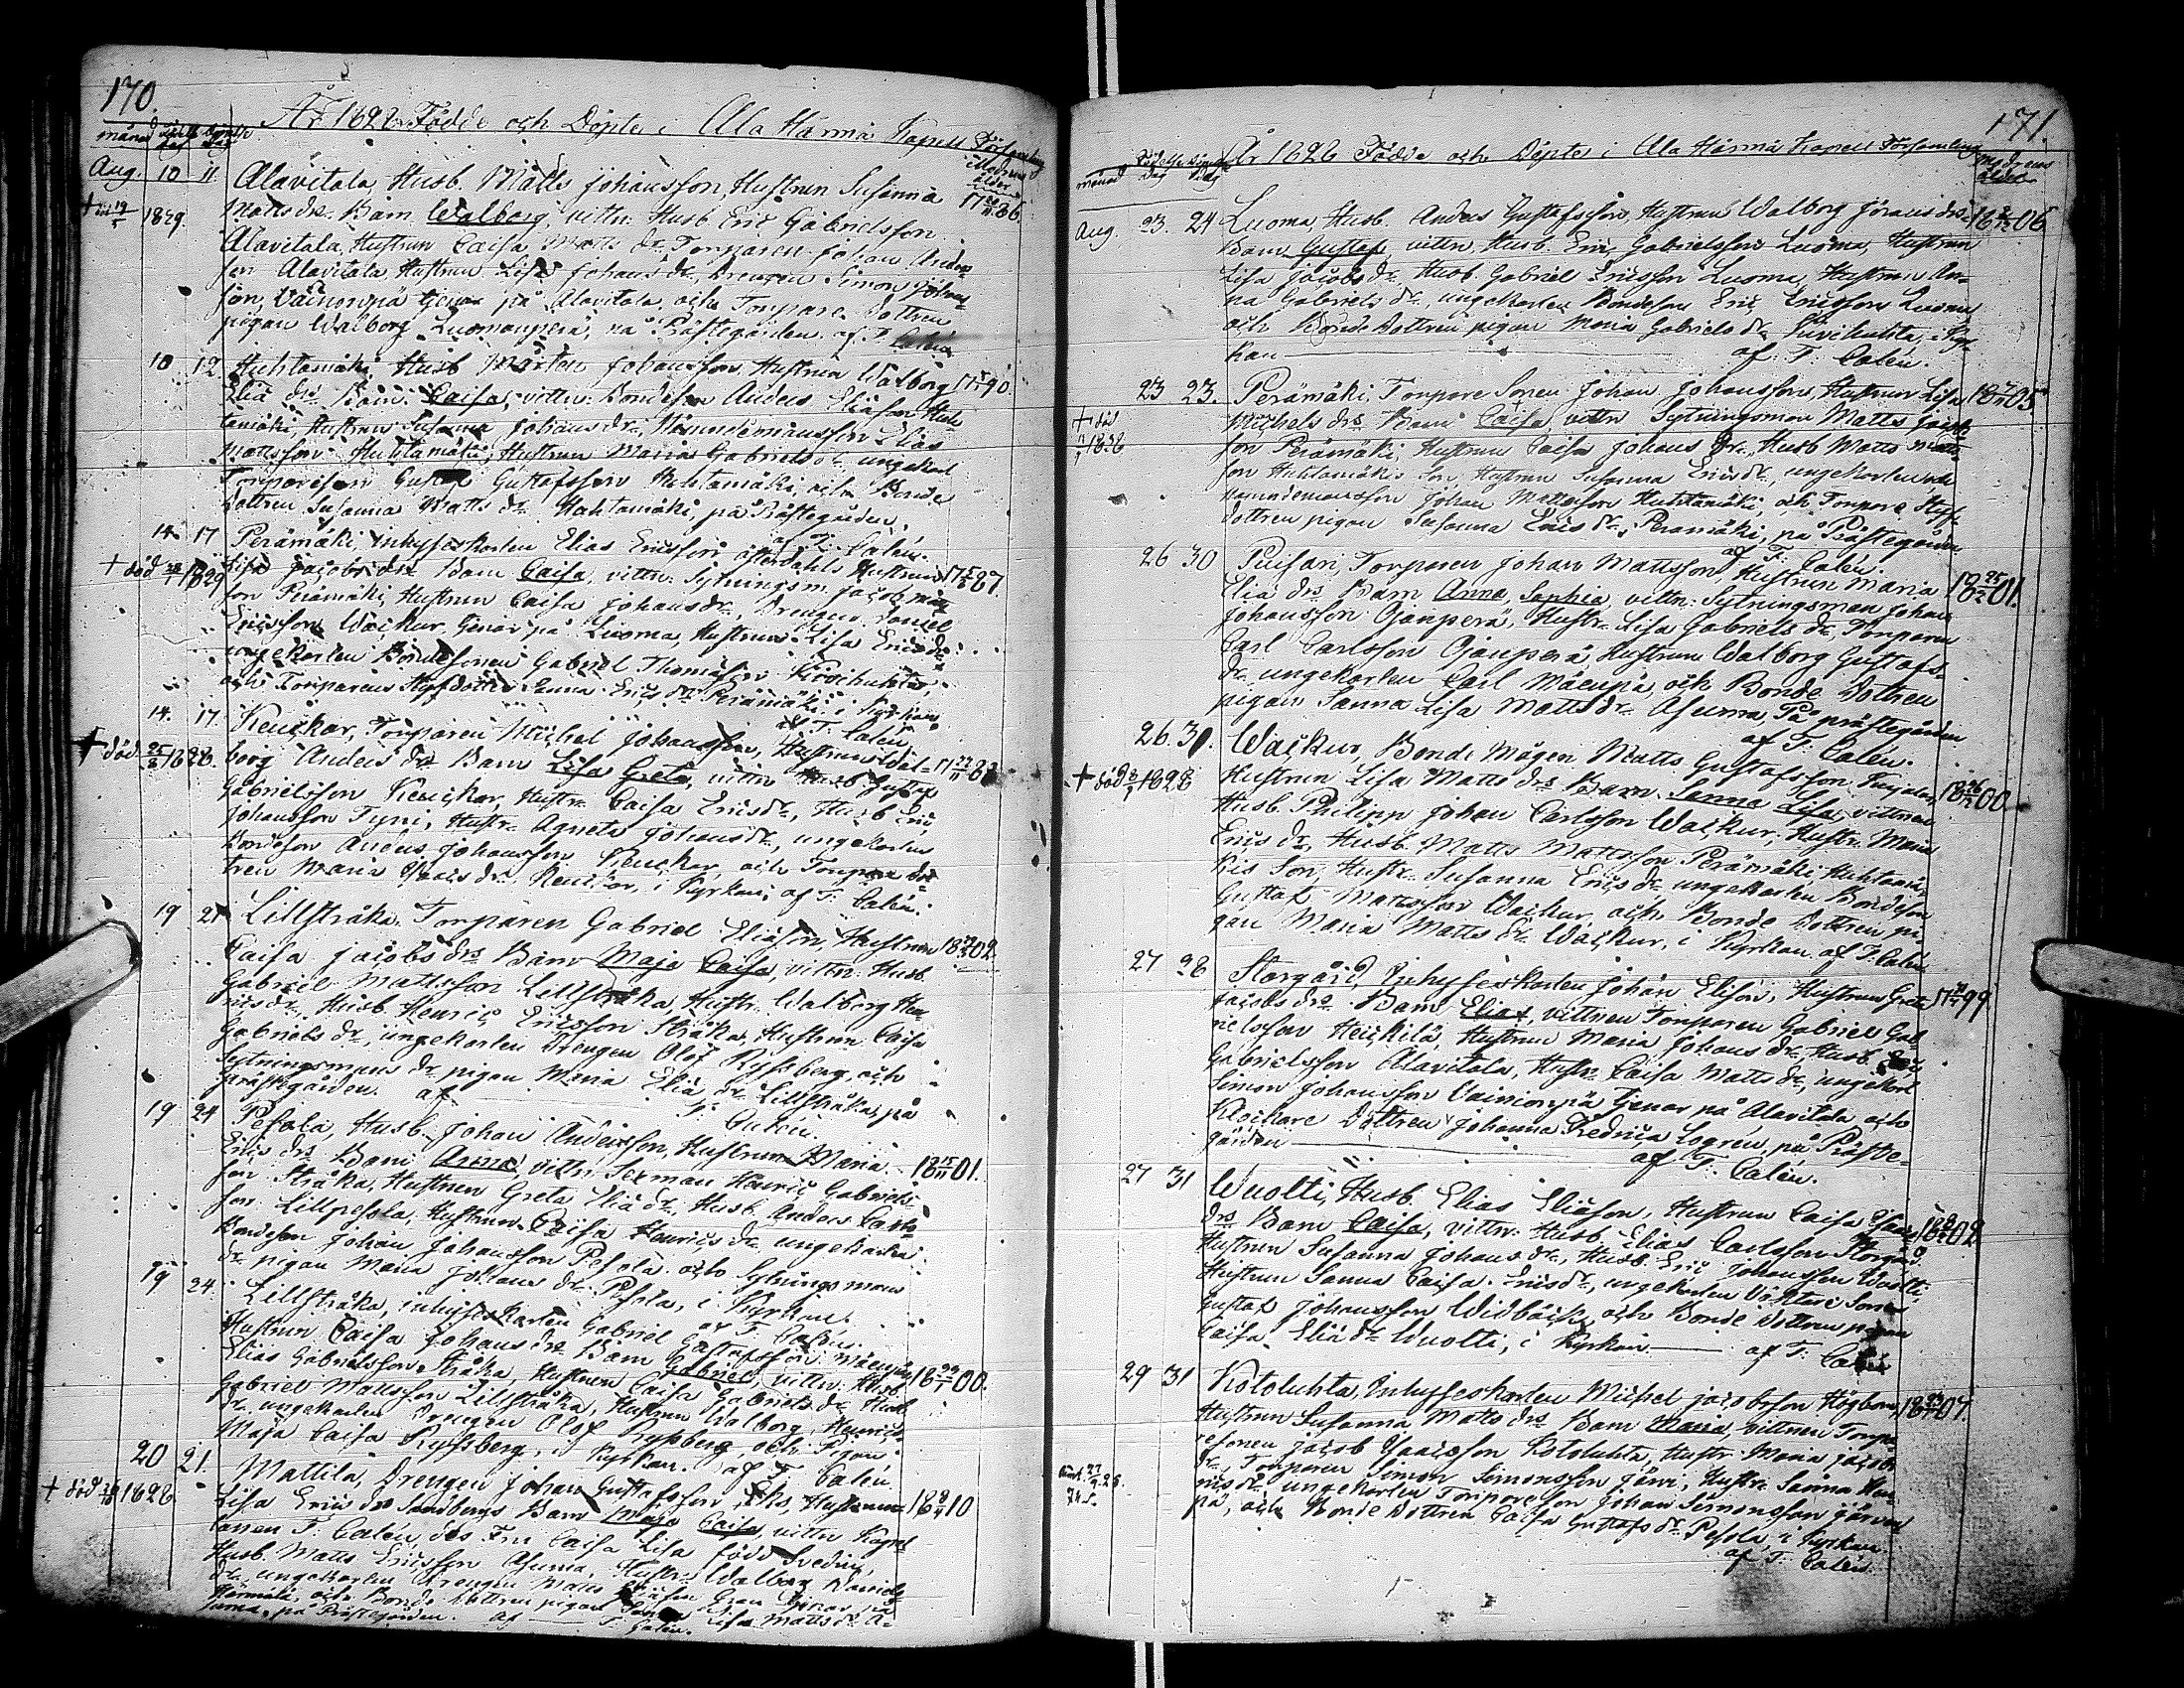 170.
År 1828 Födde och Döpte i Ala Härmä Kapell Församling
månad dag dag Modrens ålder
Aug. 10 11. Alavitala, Husb. Matts Johansson, Hustrun Susanna 17 86.
1829. Matts dr. Barn Walborg, vittn: Husb Eric Gabrielsson
Alavitala, Hustrun Caisa Matts dr. Torparen Johan Anders
son Alavitala Hustrun Lisa Johans dr, Drengen Simon Johans
son Vainionpä tjenar på Alavitala och Torpare Dottren
pigan Walborg Luomanperä, på Prästegården. af F. Calén
10 12 Huhtamäki, Husb Mårten Johansson Hustrun Walborg 17 90.
Eliä dr. Barn Caisa, vittn: Bondeson Anders Eliäson Huh
tamäki, Hustrun Susanna Johans dr, Nämndemansson Elias
Mattsson Huhtamäki, Hustrun Maria Gabriels dr ungekarl
Torparesson Gustaf Gustafsson Huhtamäki och Bonde
Dottren Susanna Matts dr Huhtamäki, på Prästegården.
af F. Calén.
14 17 Perämäki, Inhyseskarlen Elias Ericsson Österdahls Hustrun 17 87.
+ död 1829 Lisa Jacobs dr Barn Caisa, vittn: Sytningsm. Jacob Matts
son Perämäki, Hustrun Caisa Johans dr, Drengen Daniel
Ericsson Wackur, tjenar på Luoma, Hustrun Lisa Erics dr
ungekarlen Bondesonen Gabriel Thomasson Kivihuhta,
och Torparens Styfdotter Sanna Erics dr Perämäki i Kyrkan
af F. Calén
14. 17. Keuckar, Torparen Michel Johansson, Hustrun Wal- 17
+ död 1828. borg Anders dr Barn Lisa Greta, vittn Husb Gustaf
Gabrielsson Keuckar, Hustr. Caisa Erics dr, Husb Eric
Johansson Tyni, Hustr. Agneta Johans dr, ungekarlen
Bondeson Anders Johansson Keuckar, och Torpare Dot
tren Maria Isaacs dr Keuckar, i Kyrkan, af F. Calén.
19 21 Lillstråka, Torparen Gabriel Eliäson, Hustrun 18 02.
Caisa Jacobs dr Barn Maja Caisa, vittn: Husb
Gabriel Mattsson Lillstråka, Hustr. Walborg Hen
rics dr, Husb Henric Ericsson Stråka, Hustrun Caisa
Gabriels dr, ungekarlen Drengen Olof Ryssberg, och
Sytningsmans dr pigan Maria Eliä dr Lillstråka, på
prästegården. af F. Calén.
19 24 Pesola, Husb. Johan Andersson, Hustrun Maria 18 01.
Erics dr Barn Anna, vittn: Sexman Henric Gabriels
son Stråka, Hustrun Greta Eliä dr, Husb. Anders Carls
son Lillpesola, Hustrun Caisa Henrics dr, ungekarlen
Bondeson Johan Johansson Pesola och Sytningsmans
dr pigan Maria Johans dr Pesola, i Kyrkan.
af F. Calén.
19 24. Lillstråka, inhyseskarlen Gabriel Gustafsson Mäenpä 18 00.
Hustrun Caisa Johans dr Barn Gabriel, vittn: Husb
Elias Gabrielsson Stråka, Hustrun Caisa Gabriels dr Husb
Gabriel Mattsson Lillstråka, Hustrun Walborg Henrics
dr ungekarlen Drengen Olof Ryssberg och Pigan
Maja Caisa Ryssberg, i Kyrkan. af F. Calén
20 21. Mattila, Drengen Johan Gustafsson, Hustrun 18 10
+ död 1828 Lisa Erics dr Sandbergs Barn Maja Caisa, vittn Kapel
lanen F. Calén, dess Fru Caisa Lisa född Svedin,
Husb. Matts Ericsson Asuma, Hustr. Walborg Daniels
dr, ungekarlen Drengen Matts Eliäson Gran tjenar på
Härmälä, och Bonde Dottren pigan Sanna Lisa Matts dr A-
suma, på Prästegården. af F. Calén.
171.
År 1828 Födde och Döpte i Ala Härmä Kapell Församling
månad Födelse dag dag Modrens ålder
Aug. 23. 24 Luoma, Husb. Anders Gustafsson, Hustrun Walborg Jörans dr 18 06
Barn Gustaf, vittn. Husb. Eric Gabrielsson Luoma, Hustrun
Lisa Jacobs dr Husb Gabriel Ericsson Luoma, Hustrun An-
na Gabriels dr, ungekarlen Bondeson Eric Ericsson Luoma
och Bonde Dottren pigan Maria Gabriels dr Kivihuhta, i Kyr-
kan af F. Calén.
23 23. Perämäki, Torpare Sonen Johan Johansson, Hustrun Lisa 18 05.
+ död 1828 Michels dr Barn Caisa vittn Sytningsman Matts Jacobs
son Perämäki, Hustrun Caisa Johans dr, Husb Matts Matts
son Huhtamäkis Son, Hustrun Susanna Erics dr, ungekarlen
Nämndemansson Johan Mattsson Huhtamäki, och Torpare Styf
dottren pigan Susanna Erics dr Perämäki, på Prästegården
af F. Calén.
26 30 Puisari, Torparen Johan Mattsson, Hustrun Maria 18 01.
Eliä dr Barn Anna Sophia, vittn: Sytningsman Johan
Johansson Ojanperä, Hustr. Lisa Gabriels dr Torparen
Carl Carlsson Ojanperä, Hustrun Walborg Gustafs
dr ungekarlen Carl Mäenpä, och Bonde Dottren
pigan Sanna Lisa Matts dr Asuma, På prästegården
af F. Calén.
26. 31. Wackur, Bonde Mågen Matts Gustafsson 18 00
+ död 1828 Hustrun Lisa Matts dr Barn Sanna Lisa, vittnen
Husb. Philipp Johan Carlsson Wackur, Hustr. Maria
Erics dr, Husb Matts Mattsson Perämäki, Huhtamä
kis Son, Hustr. Susanna Erics dr ungekarlen Bondeson
Gustaf Mattsson Wackur, och Bonde Dottren pi
gan Maria Matts dr Wackur, i Kyrkan. af F. Calén
27 28 Storgård, Inhyseskarlen Johan Elisson, Hustrun Greta 17 99
Jacobs dr Barn Elias, vittnen Torparen Gabriel Gab-
rielsson Heickilä, Hustrun Maria Johans dr, Husb Eric
Gabrielsson Alavitala, Hustr. Caisa Matts dr, ungekarl
Simon Johansson Vainionpä tjenar på Alavitala och
Klockare Dottren Johanna Fredrica Logrén, på Präste-
gården af F. Calén.
27 31 Wuolti, Husb Elias Eliäson, Hustrun Caisa Isaacs 18 02
dr Barn Caisa, vittn. Husb. Elias Carlsson Storgård
Hustrun Susanna Johans dr, Husb. Eric Johansson Wuolti
Hustrun Sanna Caisa Erics dr, ungekarlen Väktare Sonen
Gustaf Johansson Widbäck, och Bonde Dottren pigan
Caisa Eliä dr Wuolti, i Kyrkan af F. Calén
29 31 Kotoluhta, Inhyseskarlen Michel Jacobsson Högbom, 18 07.
Hustrun Susanna Matts dr Barn Maria, vittnen Torpa
resonen Jacob Isaacsson Kotoluhta, Hustr. Maria Jacobs
dr, Torparen Simon Simonsson Järvi, Hustr. Sanna Hen
rics dr ungekarlen Torpareson Johan Simonsson Järven
pä, och Bonde Dottren Caisa Gustafs dr Pesola, i Kyrkan
af F. Calén.